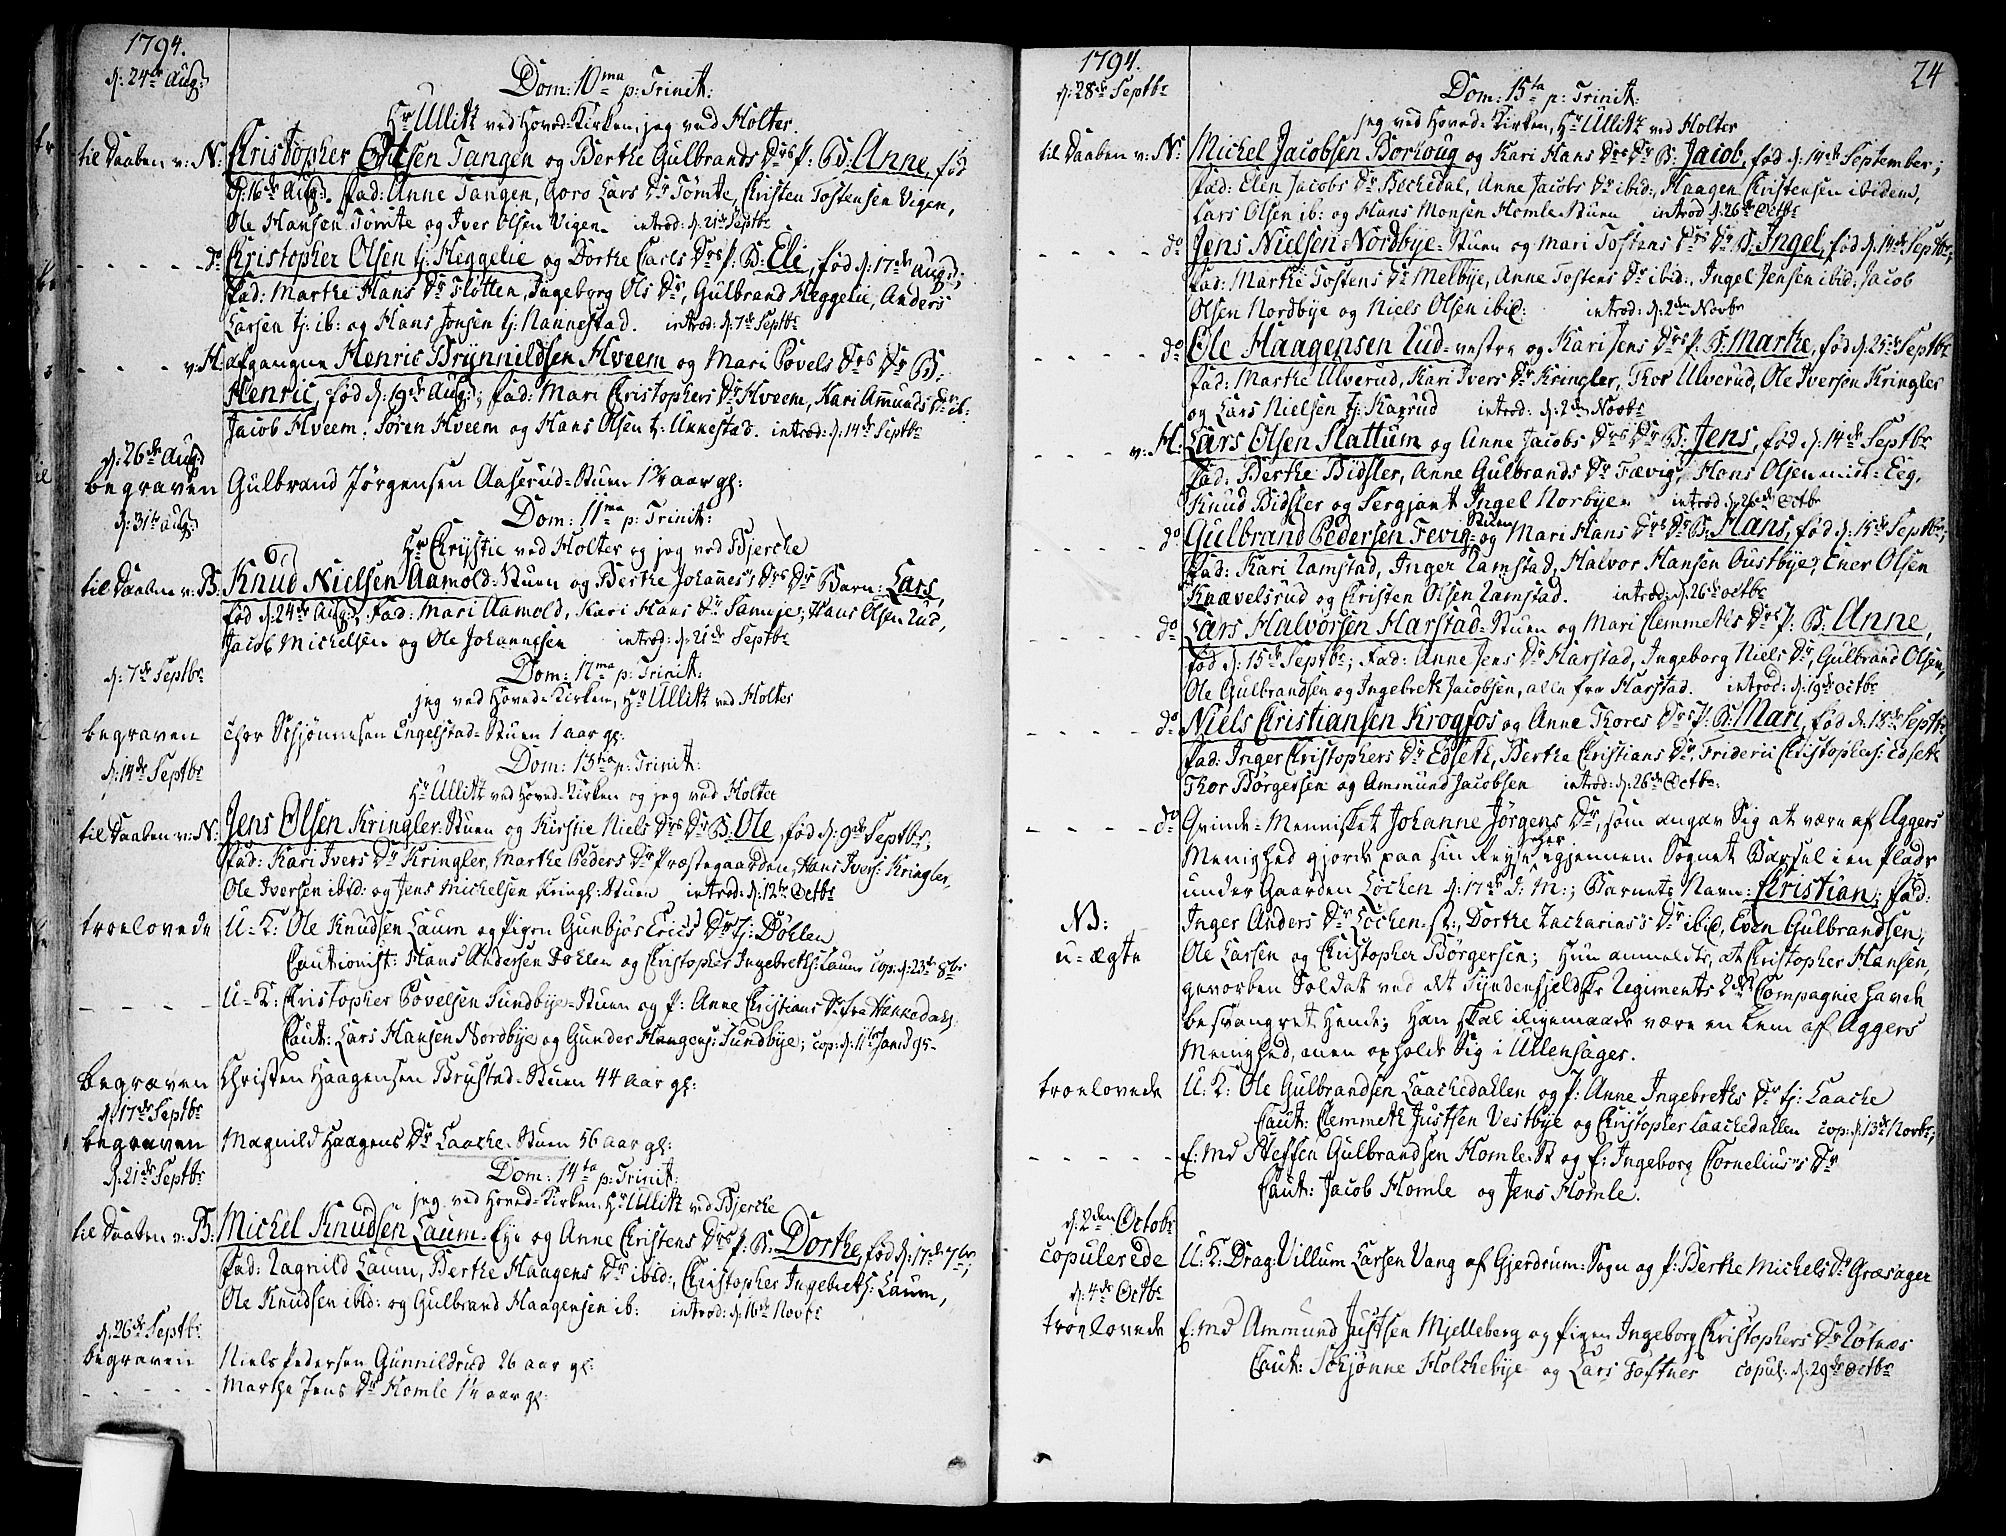 1794.
d: 24de Aug:
Dom: 10ma p: Trinit:
Hr Ullitz ved Hoved-Kirken, jeg ved Holter.
til Daaben v: N: Christopher Olsen Tangen og Berthe Gulbrands Drs P: B: Anne, fød
d: 16de Aug: Fad: Anne Tangen, Goro Lars Dr Tømte, Christen Tostensen Vigen,
Ole Hansen Tømte og Iver Olsen Vigen. introd: d: 21de Septbr
- - - - - do Christopher Olsen tj: Heggelie og Dorthe Carls Drs P: B: Eli, fød d: 17de Aug:;
Fad: Marthe Hans Dr Flotten, Ingeborg Ols Dr, Gulbrand Heggelie, Anders
Larsen tj: ib: og Hans Jonsen tj: Nannestad. introd: d: 7de Septbr
- - - - v: H: afgangne Henric Brynnildsen Hveem og Mari Povels Drs Dr B:
Henric, fød d: 19de Aug:; Fad: Mari Christophers Dr Hveem, Kari Amunds Dr ib:
Jacob Hveem, Søren Hveem og Hans Olsen tj: Annestad. introd: d: 14de Septbr
d: 26de Aug:
begraven Gulbrand Jørgensen Aaserud-Stuen 1¼ aar gl:
d: 31te Aug:
Dom: 11ma p: Trinit:
Hr Chrystie ved Holter og jeg ved Bjerche
til Daaben v: B: Knud Nielsen Aamold-Stuen og Berthe Johannes's Drs Dr Barn: Lars,
fød d: 24de Aug:, Fad: Mari Aamold, Kari Hans Dr Samuje, Hans Olsen Rud,
Jacob Michelsen og Ole Johannesen introd: d: 21de Septbr
d: 7de Septbr
Dom: 12ma p: Trinit:
jeg ved Hoved-Kirken, Hr Ullitz ved Holter
begraven Thor Schjønnesen Engelstad-Stuen 1 aar gl:
d: 14de Septbr
Dom: 13tia p: Trinit:
Hr Ullitz ved Hoved-Kirken og jeg ved Holter
til Daaben v: N: Jens Olsen Kringler-Stuen og Kirstie Niels Drs Dr B: Ole, fød d: 9de Septbr;
Fad: Kari Ivers Dr Kringler, Marthe Peders Dr Præstegaarden, Hans Ivers: Kringler,
Ole Iversen ibid: og Jens Michelsen Kringl: Stuen introd: d: 12te Octbr
troelovede U-K: Ole Knudsen Laum og Pigen Gunbjør Erics Dr tj: Døhlen
Cautionist: Hans Andersen Døhlen og Christopher Ingebreths: Laum cop: d: 23de 8br
- - - - U-K: Christopher Povelsen Sundbye-Stuen og P: Anne Christians Dr fra Hakkedahl:
Caut: Lars Hansen Nordbye og Gunder Haagens: Sundbye; cop: d: 11te Janr 95-
begraven Christen Haagensen Brustad-Stuen 44 aar gl:
d: 17de Septbr
begraven Magnild Haagens Dr Laache-Stuen 56 aar gl:
d: 21de Septbr
Dom: 14ta p: Trinit:
jeg ved Hoved-Kirken, Hr Ullitz ved Bjerche
til Daaben v: B: Michel Knudsen Laum-Eje og Anne Christens Drs P: B: Dorthe, fød d: 17de 7br;
Fad: Ragnild Laum, Berthe Haagens Dr ibid:, Christopher Ingebreths: Laum,
Ole Knudsen ibid: og Gulbrand Haagensen ib: introd: d: 16de Novbr
d: 26de Septbr
begraven Niels Pedersen Gunnildrud 26 aar gl:
- - - - Marthe Jens Dr Homle 1¼ aar gl:
1794.
24
d: 28de Septbr
Dom: 15ta p: Trinit:
jeg ved Hoved-Kirken, Hr Ullitz ved Holter
til Daaben v: N: Michel Jacobsen Borhoug og Kari Hans Drs Dr B: Jacob, fød d: 14de September;
Fad: Elin Jacobs Dr Bechedal, Anne Jacobs Dr ibid:, Haagen Christensen ibidem,
Lars Olsen ib: og Hans Monsen Homle-Stuen introd: d: 26de Octbr
- - - - do Jens Nielsen Nordbye-Stuen og Mari Tostens Drs Dr B: Ingel, fød d: 14de Septbr;
Fad: Marthe Tostens Dr Melbye, Anne Tostens Dr ibid:, Ingel Jensen ibid: Jacob
Olsen Nordbye og Niels Olsen ibid: introd: d: 2den Novbr
- - - - do Ole Haagensen Rud-vestre og Kari Jens Drs P: B: Marthe, fød d: 25de Septbr
Fad: Marthe Ulverud, Kari Ivers Dr Kringler, Thor Ulverud, Ole Iversen Kringler
og Lars Nielsen tj: Kaxrud introd: d: 2den Novbr
- - - - v: H: Lars Olsen Slattum og Anne Jacobs Drs Dr B: Jens, fød d: 14de Septbr
Fad: Berthe Bidsler, Anne Gulbrands Dr Fævig, Hans Olsen midt-Eeg,
Knud Bidsler og Sergjant Ingel Norbye. introd: d: 26de Octbr
- - - - do Gulbrand Pedersen Fevig-Stuen og Mari Hans Drs Dr B: Hans, fød d: 15de Septbr;
Fad: Kari Ramstad, Inger Ramstad, Halvor Hansen Oustbye, Ener Olsen
Knævelsrud og Christen Olsen Ramstad. introd: d: 26de Octbr
- - - - do Lars Halvorsen Harstad-Stuen og Mari Clemmeths Drs P: B: Anne,
fød d: 15de Septbr; Fad: Anne Jens Dr Harstad, Ingeborg Niels Dr, Gulbrand Olsen,
Ole Gulbrandsen og Ingebreth Jacobsen, alle fra Harstad. introd: d: 19de Octbr
- - - - do Niels Christiansen Krogfos og Anne Thores Drs P: B: Mari, fød d: 18de Septbr
Fad: Inger Christophers Dr Edseth, Berthe Christians Dr, Frideric Christophers: Edseth
Thor Børgersen og Ammund Jacobsen introd: d: 26de Octbr:
- - - - do Qvinde-Mennisket Johanne Jørgens Dr, som angav Sig at være af Aggers
Menighed gjorde paa sin Reyse her igjennem Sognet Barsel i en Flade
under Gaarden Løchen d: 17de d: M:; Barnets Navn: Christian; Fad:
NB:
u-ægte
Inger Anders Dr Løchen-st:, Dorthe Zacharias's Dr ibid, Even Gulbrandsen,
Ole Larsen og Christopher Børgersen; Hun anmeldte, at Christopher Hansen,
gevorben Soldat ved det Syndenfjeldske Regiments 2det Compagnie havde
besvangret Hende; Han skal iligemaade være en Lem af Aggers
Menighed, men opholde Sig i Ullensager.
troelovede U: K: Ole Gulbrandsen Laachedahlen og P: Anne Ingebreths Dr tj: Laache
Caut: Clemmeth Justsen Vestbye og Christopher Laachedahlen cop: d: 13de Novbr;
- - - - E: Md Steffen Gulbrandsen Homle-St og E: Ingeborg Cornelius's Dr
Caut: Jacob Homle og Jens Homle.
d: 2den Octobr
copulerede U: K: Drag: Villum Larsen Vang af Gjerdrum-Sogn og P: Berthe Michels Dr Græsager
d: 4de Octbr
troelovede E: Md Ammund Justsen Mjelleberg og Pigen Ingeborg Christophers Dr Rotnæs
Caut: Schjønne Holchebye og Lars Toftner copul: d: 29de Octbr